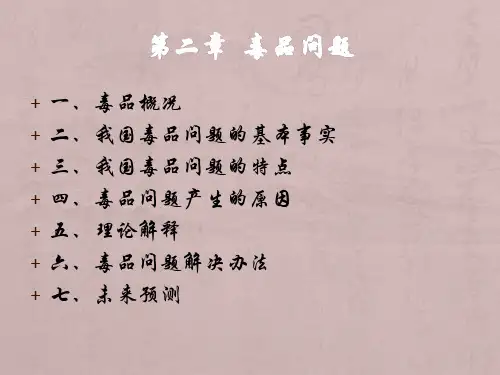 第二章 毒品问题
+ 一、毒品概况
+ 二、我国毒品问题的基本事实
+ 三、我国毒品问题的特点
+ 四、毒品问题产生的原因
+ 五、理论解释
+ 六、毒品问题解决办法
+ 七、未来预测